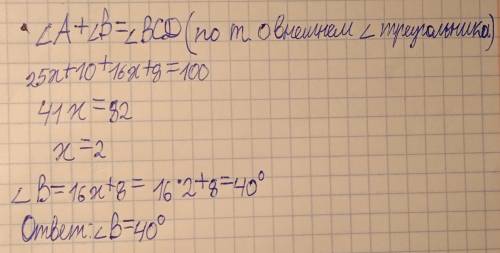 ∠A+∠B=∠BCD (по т. о внешнем ∠ треугольника)
25x+10+16x+8=100
41x=82
x=2
∠B=16x+8=16·2+8=40°
Ответ:∠B=40°